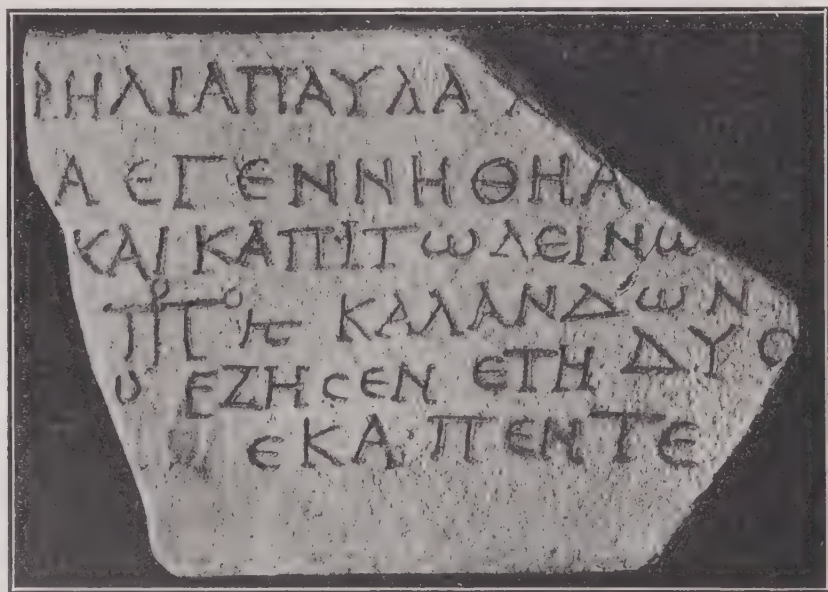 ΡΗΛΙΑ ΠΑΥΛΑ
Α ΕΓΕΝΝΗΘΗ Α
ΚΑΙ ΚΑΠΙΤωΛΕΙΝω
ΚΑΛΑΝΔωΝ
ΕΖΗϹΕΝ ΕΤΗ ΔΥΟ
ΕΚΑ ΠΕΝΤΕ